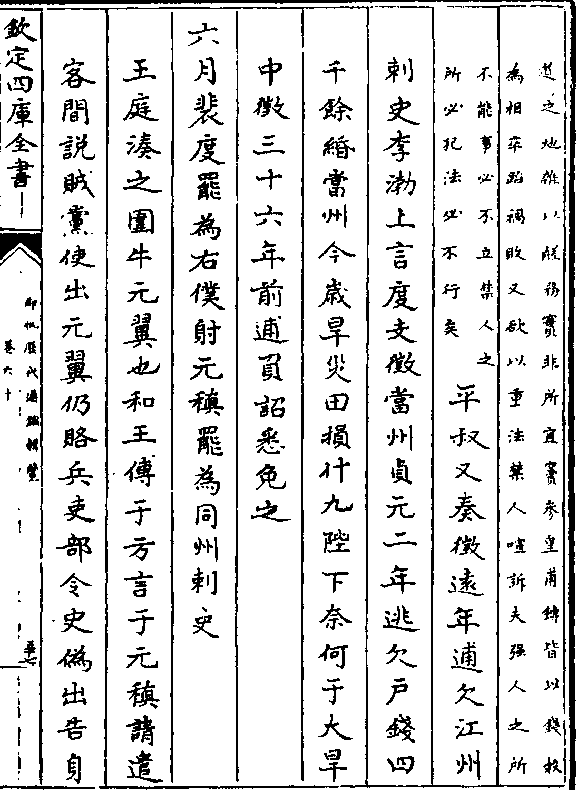 其之地雜以㒹務實非所宜竇參皇甫鎛皆以錢榖
為相卒蹈禍敗又欲以重法禁人喧訴夫强人之所
不能事必不立禁人之
所必犯法必不行矣
平叔又奏徵遠年逋欠江州
刺史李渤上言度支徵當州貞元二年逃欠戸錢四
千餘緡當州今歲旱災田損什九陛下奈何于大旱
中徵三十六年前逋負詔悉免之
六月裴度罷為右僕射元稹罷為同州刺史
王庭湊之圍牛元翼也和王傅于方言于元稹請遣
客間説賊黨使出元翼仍賂兵吏部令史偽出告身
欽定四庫全書
御批歷代通鑑輯覽
卷六十